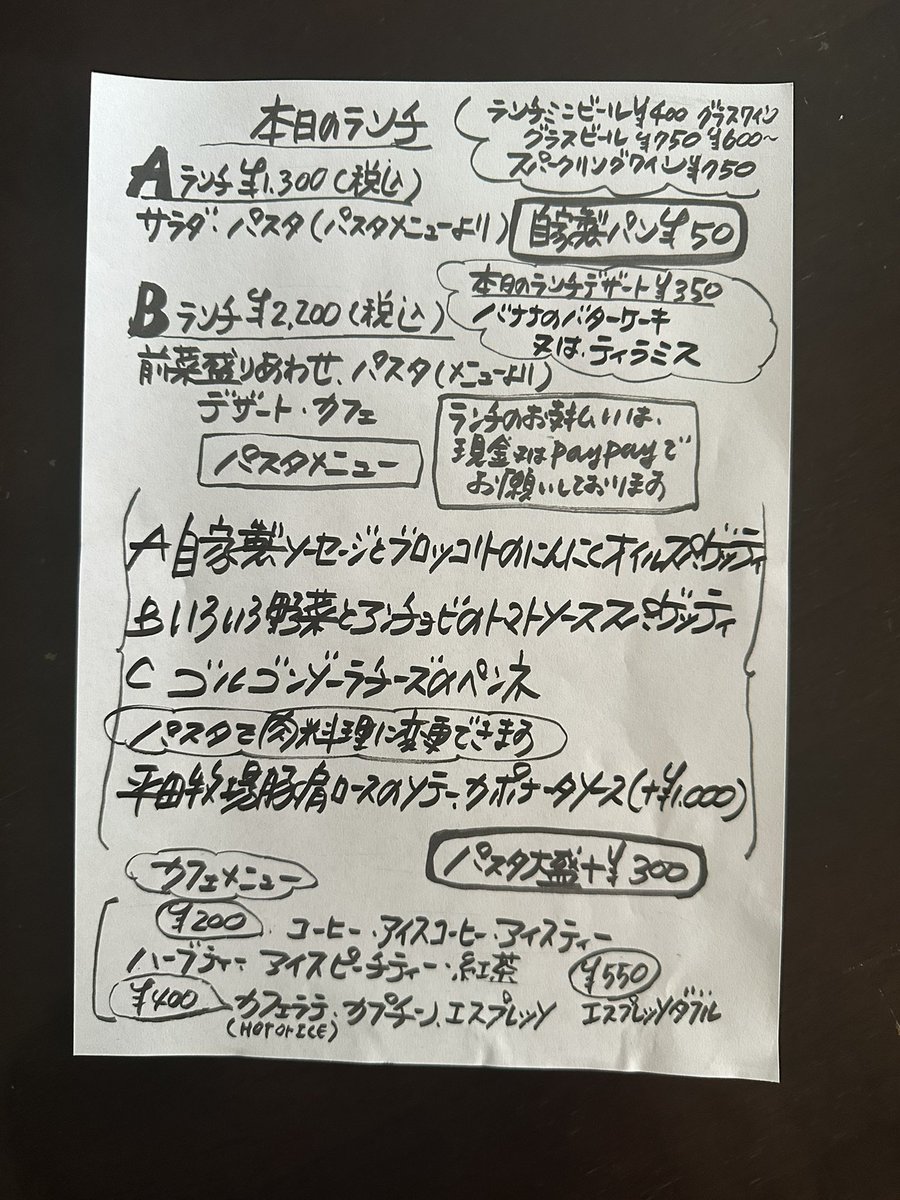 本日のランチ
ランチミニビール¥400 グラスワイン
グラスビール ¥750 ¥600〜
スパークリングワイン¥750
Aランチ ¥1,300(税込)
サラダ・パスタ(パスタメニューより)
自家製パン¥50
本日のランチデザート¥350
バナナのバターケーキ
又は、ティラミス
Bランチ ¥2,200(税込)
前菜盛りあわせ、パスタ(メニューより)
デザート・カフェ
ランチのお支払いは、
現金又はpaypayで
お願いしております
パスタメニュー
A 自家製ソーセージとブロッコリーのにんにくオイルスパゲッティ
B いろいろ野菜とアンチョビのトマトソーススパゲッティ
C ゴルゴンゾーラチーズのペンネ
パスタを肉料理に変更できます
平田牧場豚肩ロースのソテー、カポナータソース(+¥1,000)
パスタ大盛+¥300
カフェメニュー
¥200 コーヒー・アイスコーヒー・アイスティー
ハーブティー・アイスピーチティー・紅茶
¥400 カフェラテ・カプチーノ・エスプレッソ
(HOT or ICE)
¥550
エスプレッソダブル